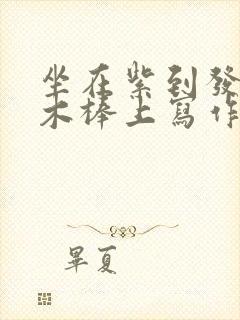 坐在紫到發
木棒上寫作
畢夏